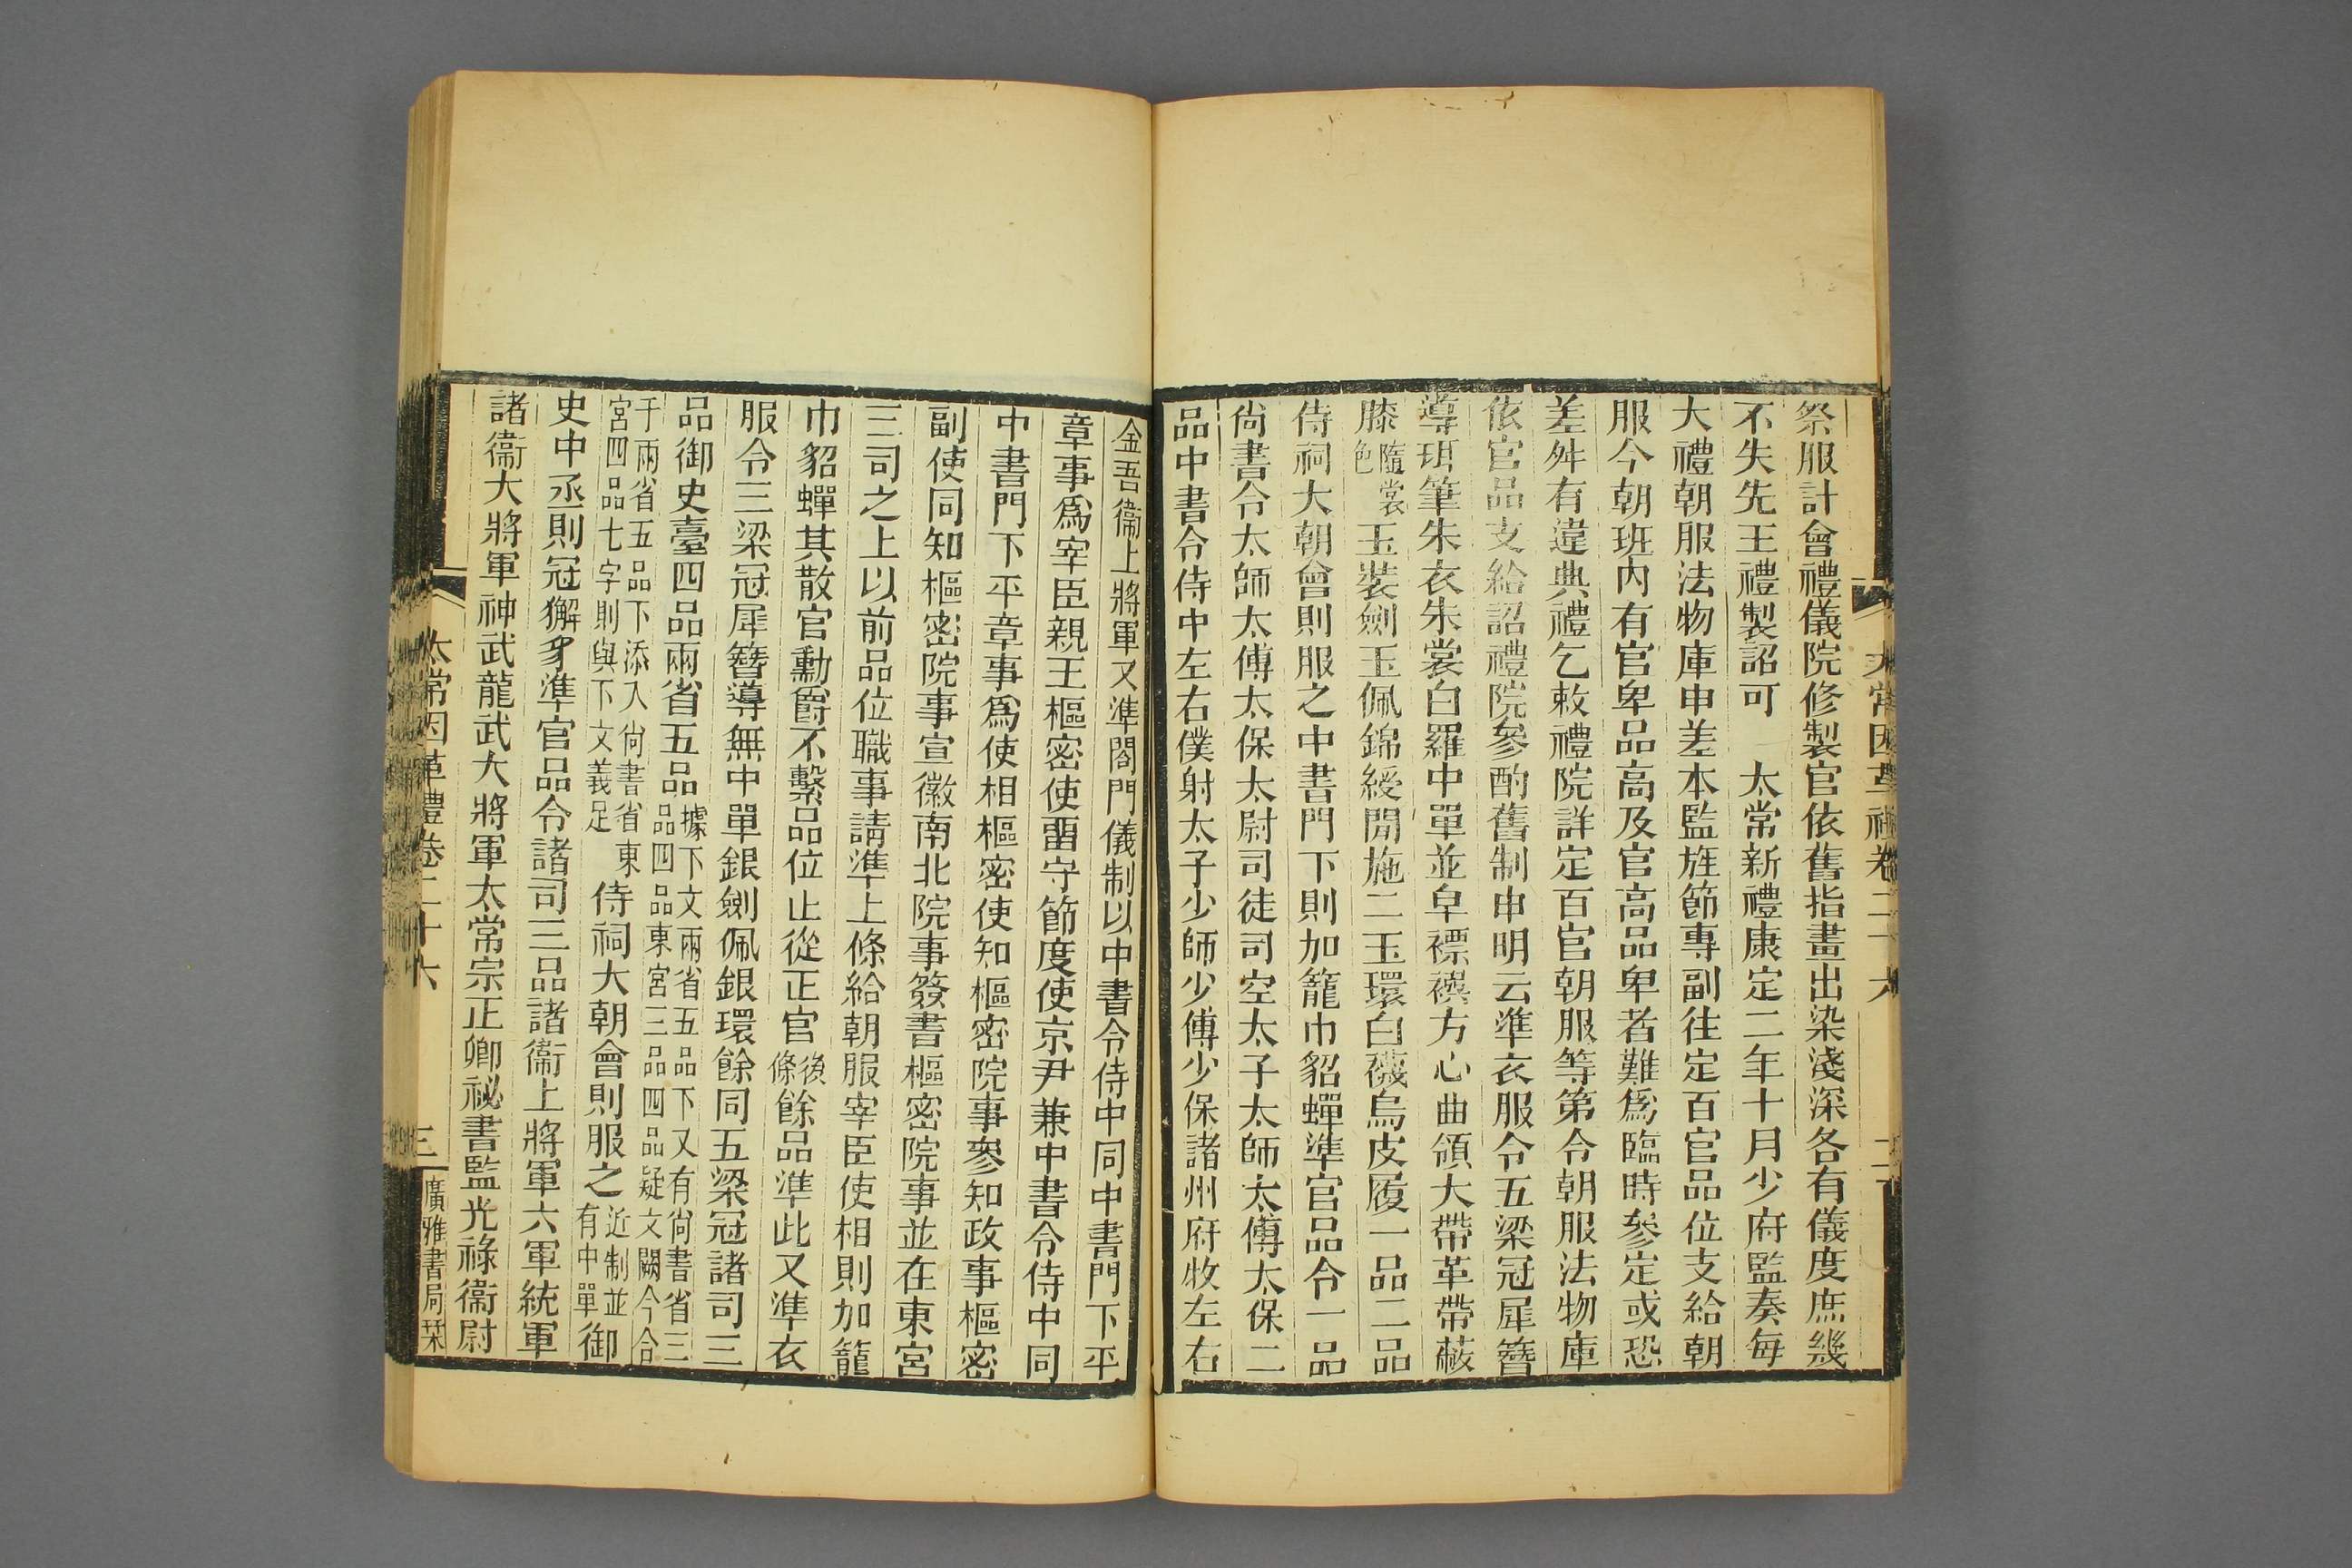 祭服計會禮儀院修製官依舊指畫出染淺深各有儀度庶幾
不失先王禮製詔可　太常新禮康定二年十月少府監奏每
大禮朝服法物庫申差本監旌節專副往定百官品位支給朝
服今朝班内有官卑品高及官高品卑者難爲臨時參定或恐
差舛有違典禮乞敕禮院詳定百官朝服等第令朝服法物庫
依官品支給詔禮院參酌舊制申明云準衣服令五梁冠犀簪
導珥筆朱衣朱裳白羅中單並皁褾襈方心曲領大帶革帶蔽
膝隨裳色玉裝劍玉佩錦綬閒施二玉環白襪烏皮履一品二品
侍祠大朝會則服之中書門下則加籠巾貂蟬準官品令一品
尚書令太師太傅太保太尉司徒司空太子太師太傅太保二
品中書令侍中左右僕射太子少師少傅少保諸州府牧左右
金吾衞上將軍又準閤門儀制以中書令侍中同中書門下平
章事爲宰臣親王樞密使畱守節度使京尹兼中書令侍中同
中書門下平章事爲使相樞密使知樞密院事參知政事樞密
副使同知樞密院事宣徽南北院事簽書樞密院事並在東宮
三司之上以前品位職事請準上條給朝服宰臣使相則加籠
巾貂蟬其散官勳爵不繫品位止從正官後條餘品準此又準衣
服令三梁冠犀簪導無中單銀劍佩銀環餘同五梁冠諸司三
品御史臺四品兩省五品據下文兩省五品下又有尚書省三品四品東宮三品四品疑文闕今合
于兩省五品下添入尚書省東宮四品七字則與下文義足侍祠大朝會則服之近制並有中單御
史中丞則冠獬豸準官品令諸司三品諸衞上將軍六軍統軍
諸衞大將軍神武龍武大將軍太常宗正卿祕書監光祿衞尉
太常因革禮卷二十六
三
廣雅書局栞